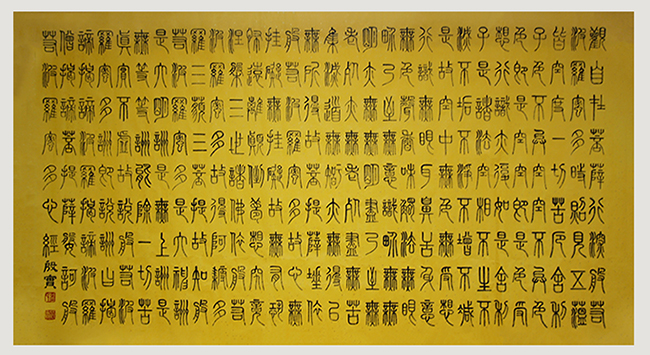 觀自在菩薩行深般若
波羅蜜多時照見五蘊
皆空度一切苦厄舍利
子色不異空空不異色
色即是空空即是色受
想行識亦復如是舍利
子是諸法空相不生不
滅不垢不淨不增不減
是故空中無色無受想
行識無眼耳鼻舌身意
無色聲香味觸法無眼
界乃至無意識界無無
明亦無無明盡乃至無
老死亦無老死盡無苦
集滅道無智亦無得以
無所得故菩提薩埵依
般若波羅蜜多故心無
罣礙無罣礙故無有恐
怖遠離顛倒夢想究竟
涅槃三世諸佛依般若
波羅蜜多故得阿耨多
羅三藐三菩提故知般
若波羅蜜多是大神咒
是大明咒是無上咒是
無等等咒能除一切苦
真實不虛故說般若波
羅蜜多咒即說咒曰揭
諦揭諦波羅揭諦波羅
僧揭諦菩提薩婆訶般
若波羅蜜多心經